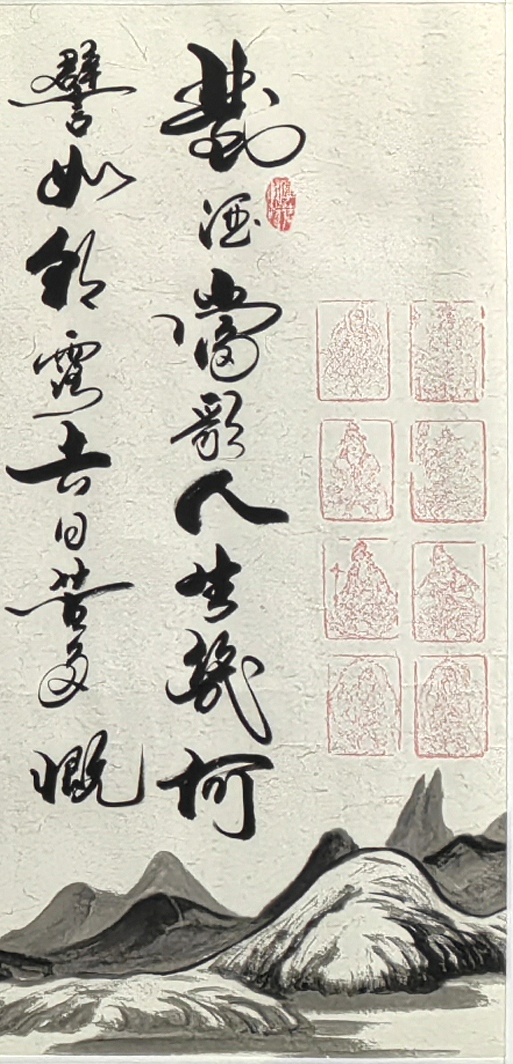 對酒當歌人生幾何
譬如朝露去日苦多慨